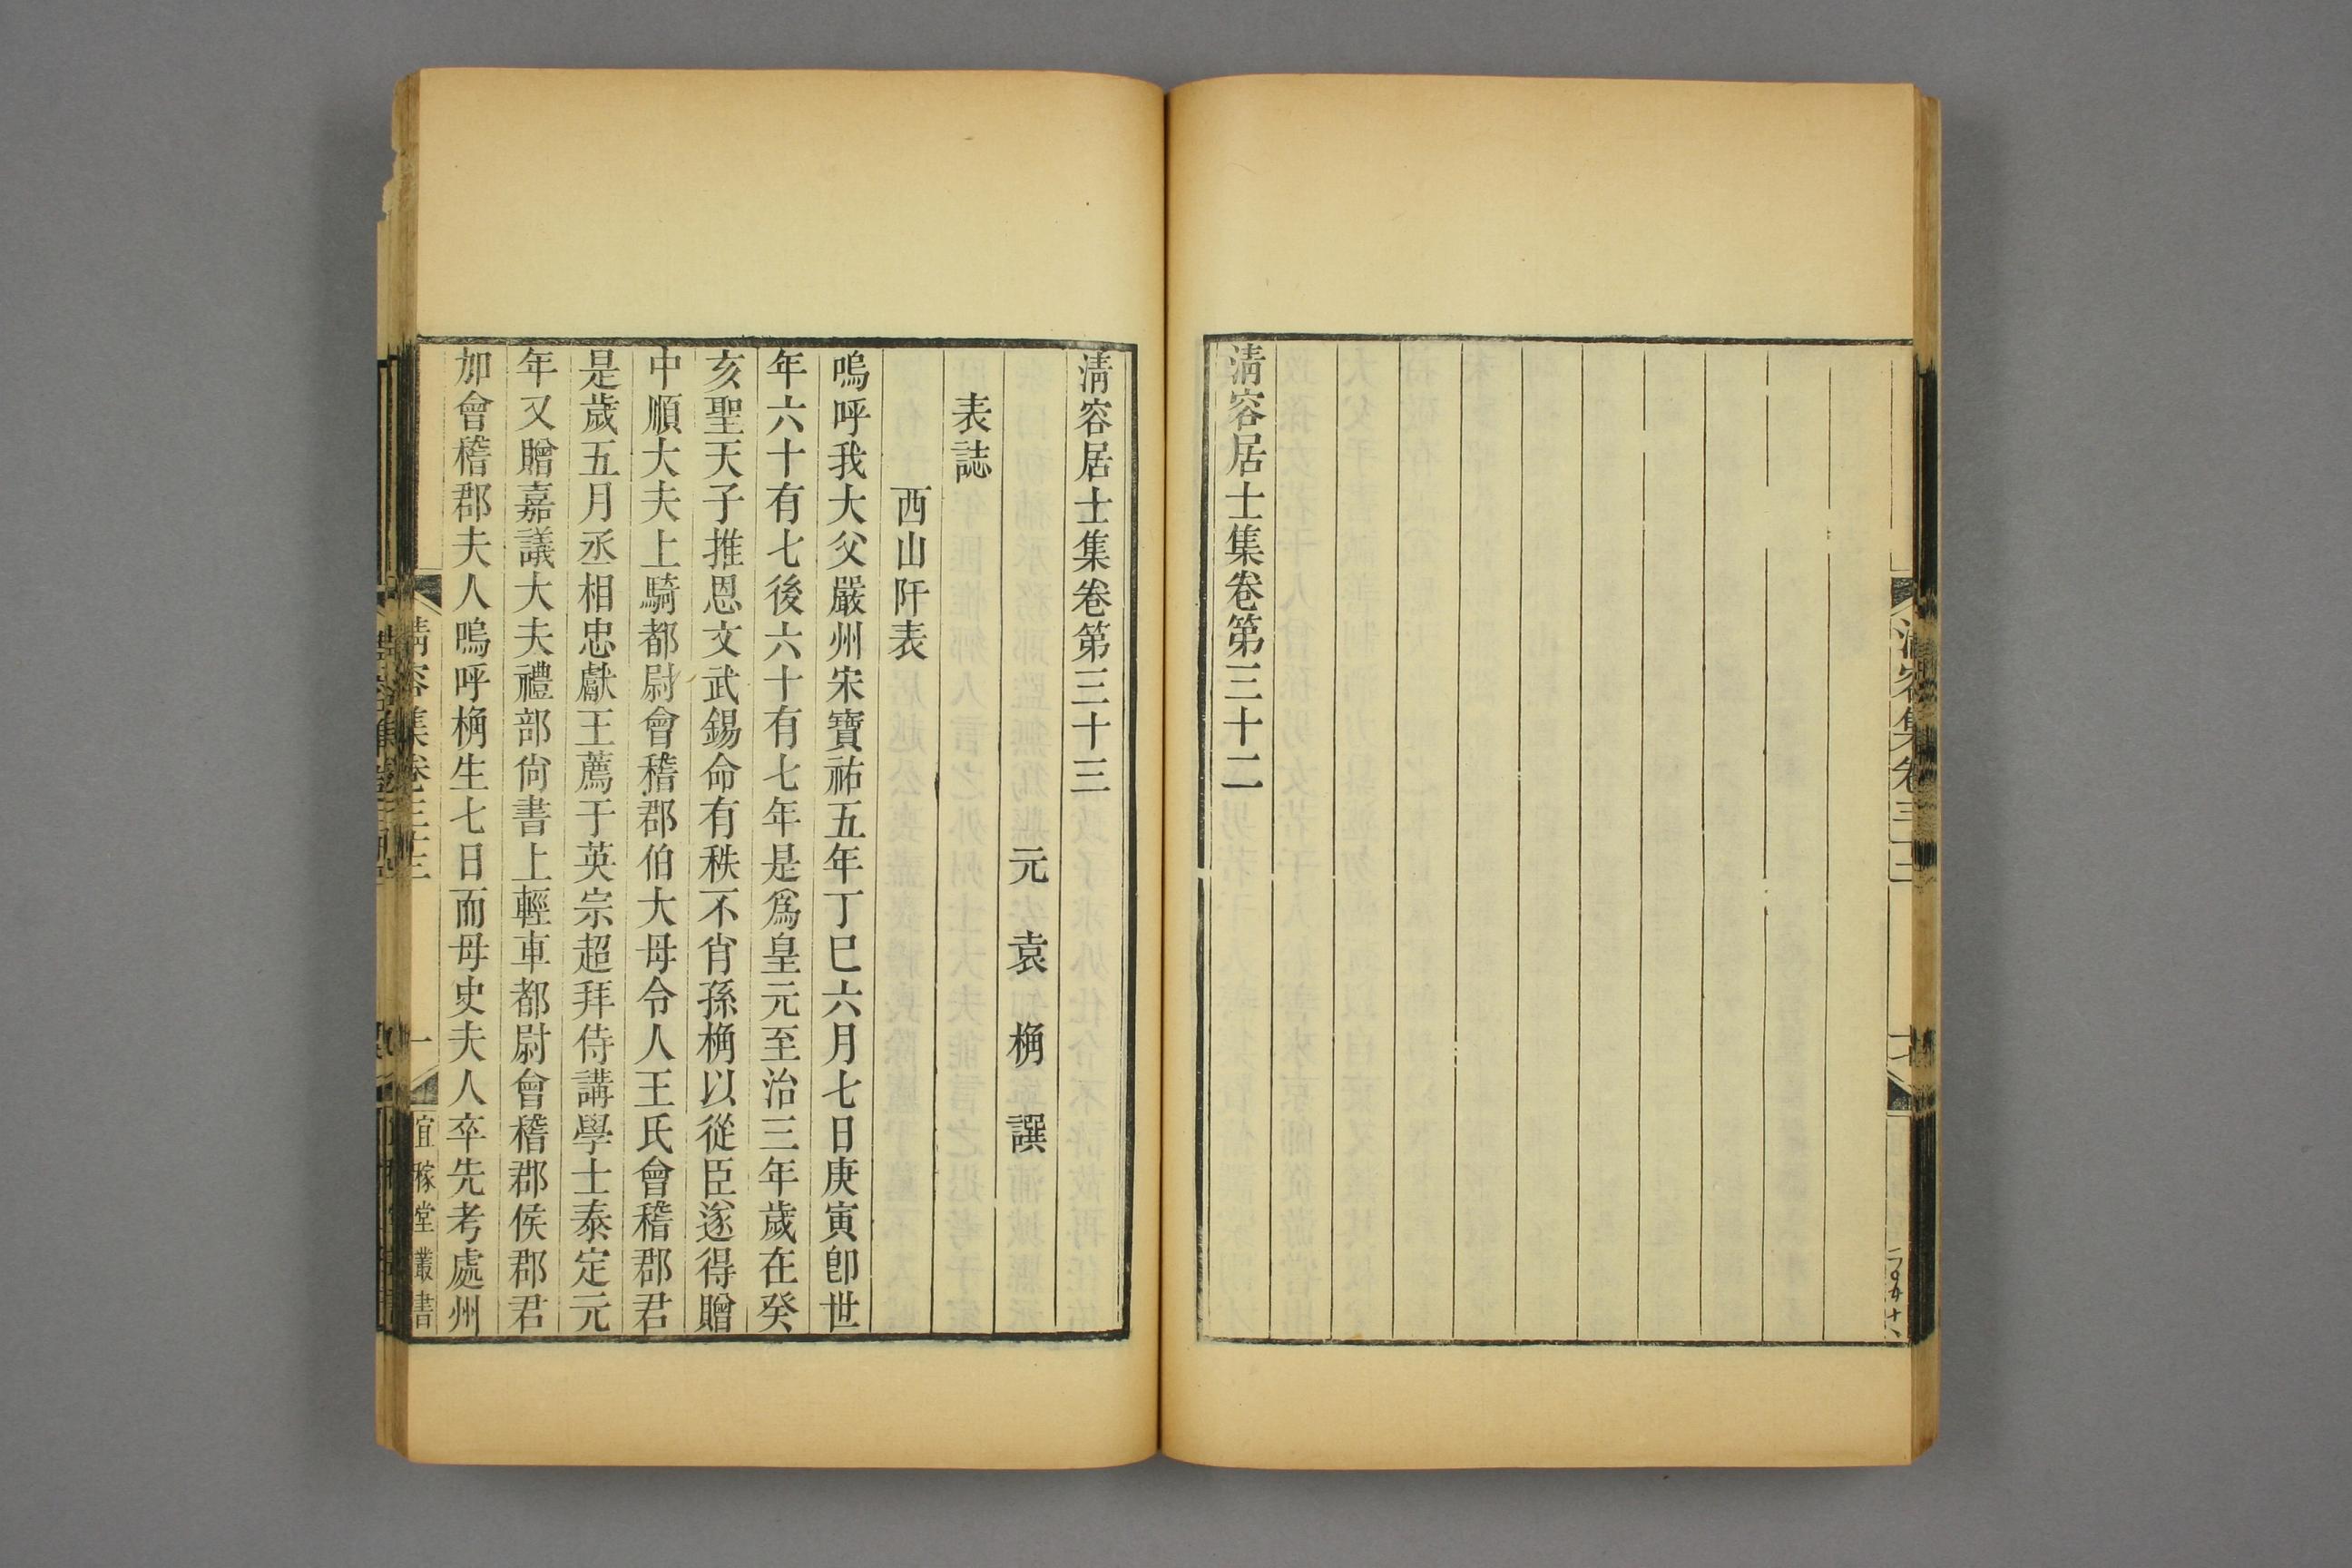 清容居士集卷第三十二
清容居士集卷第三十三
元袁桷譔
表誌
西山阡表
嗚呼我大父嚴州宋寶祐五年丁巳六月七日庚寅卽世
年六十有七後六十有七年是爲皇元至治三年歲在癸
亥聖天子推恩文武錫命有秩不肖孫桷以從臣遂得贈
中順大夫上騎都尉會稽郡伯大母令人王氏會稽郡君
是歲五月丞相忠獻王薦于英宗超拜侍講學士泰定元
年又贈嘉議大夫禮部尙書上輕車都尉會稽郡侯郡君
加會稽郡夫人嗚呼桷生七日而母史夫人卒先考處州
清容集卷三十三
一
宜稼堂叢書